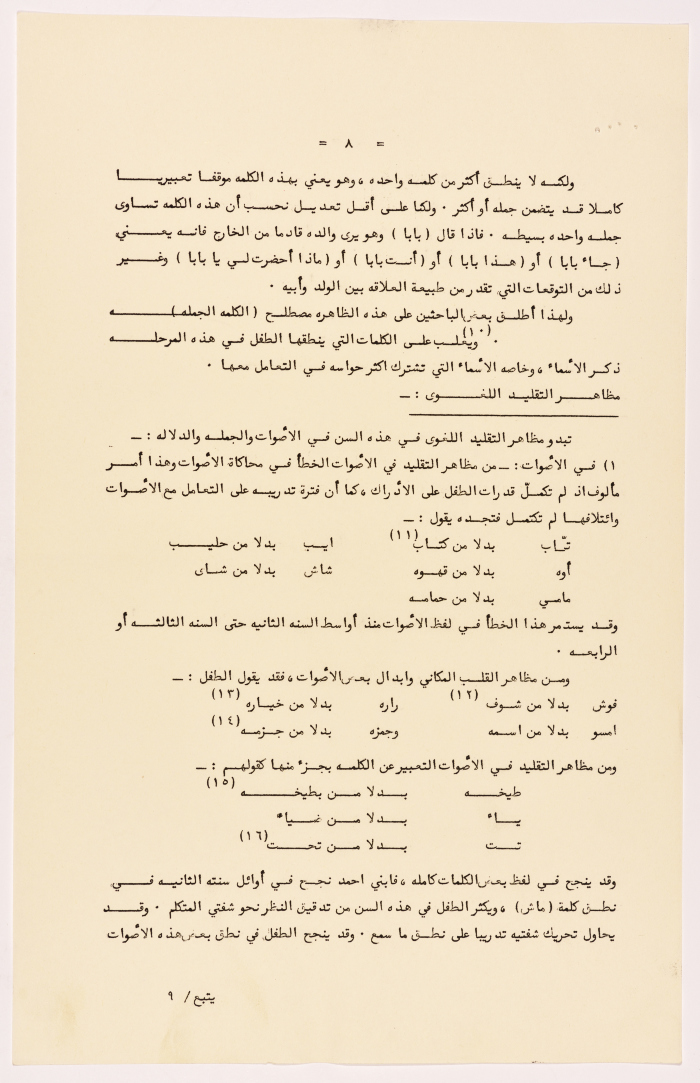 = ٨ =
ولكنه لا ينطق أكثر من كلمه واحده ، وهو يعني بهذه الكلمه موقفا تعبيريا
كاملا قد يتضمن جمله أو أكثر . ولكنا على أقل تعديل نحسب أن هذه الكلمه تساوى
جمله واحده بسيطه . فاذا قال ( بابا ) وهو يرى والده قادما من الخارج فانه يعني
( جاء بابا ) أو ( هذا بابا ) أو ( أنت بابا ) أو ( ماذا أحضرت لي يا بابا ) وغير
ذلك من التوقعات التي تقدر من طبيعة العلاقه بين الولد وأبيه .
ولهذا أطلق بعض الباحثين على هذه الظاهره مصطلح ( الكلمه الجمله )
(١٠) . ويغلب على الكلمات التي ينطقها الطفل في هذه المرحله
ذكر الأسماء ، وخاصه الأسماء التي تشترك اكثر حواسه في التعامل معها .
مظاهر التقليد اللغوى : ــ
تبدو مظاهر التقليد اللغوى في هذه السن في الأصوات والجمله والدلاله : ــ
١) في الأصوات : ــ من مظاهر التقليد في الأصوات الخطأ في محاكاة الأصوات وهذا أمر
مألوف اذ لم تكمل قدرات الطفل على الأدراك ، كما أن فترة تدريبه على التعامل مع الأصوات
وائتلافها لم تكتمل فتجده يقول : ــ
تّاب بدلا من كتاب (١١) ايب بدلا من حليب
أوه بدلا من قهوه شاش بدلا من شاى
مامي بدلا من حمامه
وقد يستمر هذا الخطأ في لفظ الأصوات منذ أواسط السنه الثانيه حتى السنه الثالثه أو
الرابعه .
ومن مظاهر القلب المكاني وابدال بعض الأصوات ، فقد يقول الطفل : ــ
فوش بدلا من شوف (١٢) راره بدلا من خياره (١٣)
امسو بدلا من اسمه وجمزه بدلا من جزمه (١٤)
ومن مظاهر التقليد في الأصوات التعبير عن الكلمه بجزء منها كقولهم : ــ
طيخه بدلا من بطيخه (١٥)
ياء بدلا من ضياء
تت بدلا من تحت (١٦)
وقد ينجح في لفظ بعض الكلمات كامله ، فابني احمد نجح في أوائل سنته الثانيه في
نطق كلمة ( ماش ) ، ويكثر الطفل في هذه السن من تدقيق النظر نحو شفتي المتكلم . وقد
يحاول تحريك شفتيه تدريبا على نطق ما سمع . وقد ينجح الطفل في نطق بعض هذه الأصوات
يتبع / ٩